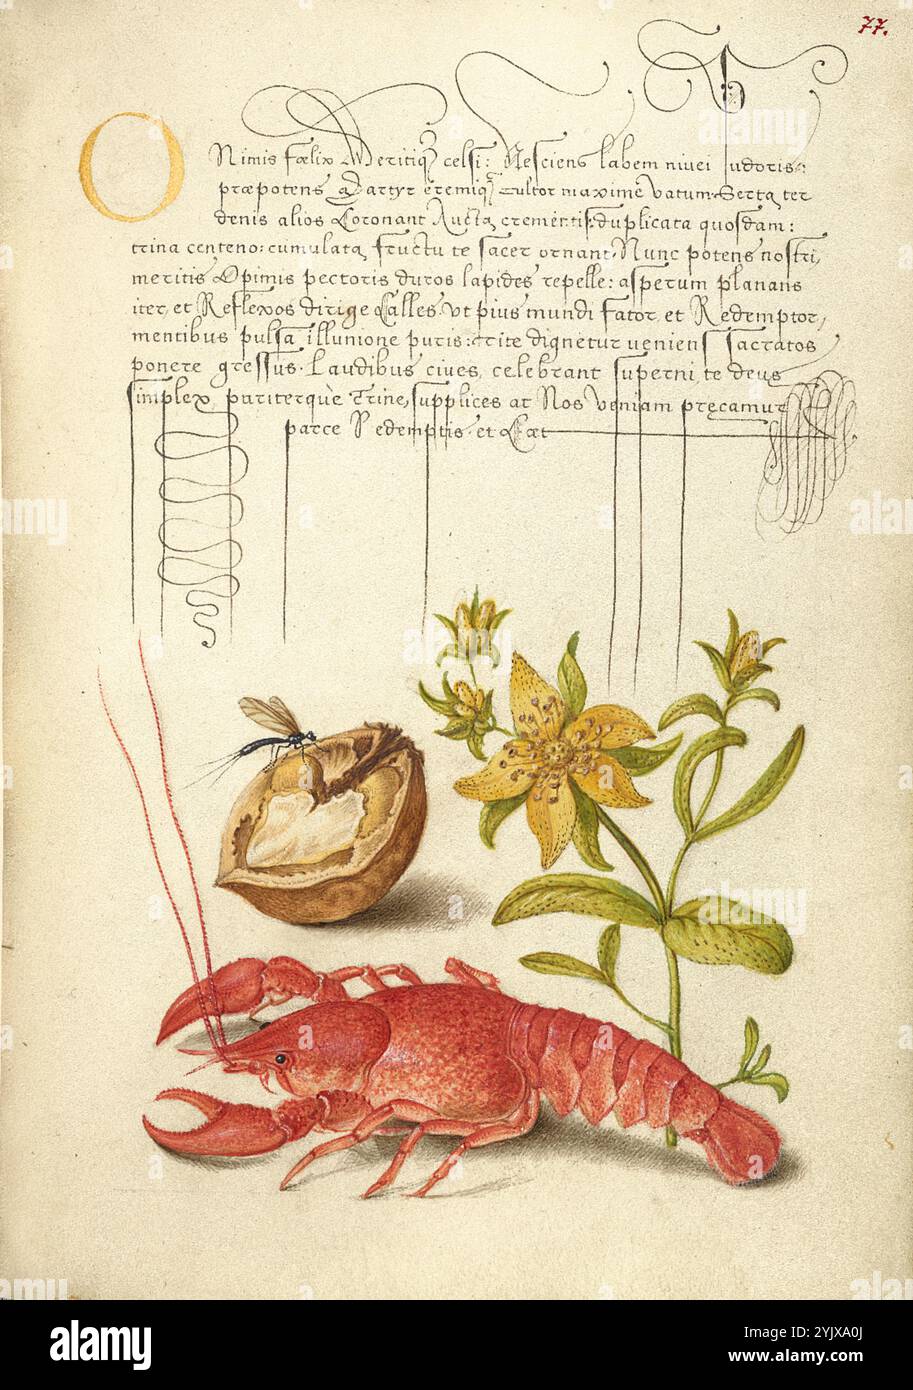 77.
O Nimis fœlix Meritiq̃ celsi: Nesciens labem nivei pudoris:
præpotens Martyr eremiq̃ cultor maxime vatum. Serta ter
denis alios Coronant Aucta crementis: duplicata quosdam:
trina centeno: cumulata fructu te sacer ornant. Nunc potens nostri,
meritis Opimis pectoris duros lapides repelle: asperum planans
iter, et Reflexos dirige Calles. Vt pius mundi sator, et Redemptor,
mentibus pulsa illunione puris: rite dignetur veniens sacratos
ponere gressus. Laudibus cives, celebrant superni, te deus
simplex pariterquè Trine, supplices at Nos veniam precamur
parce Redemptis. et Cæt
alamy
alamy
alamy
Image ID: 2YJXA0J
www.alamy.com